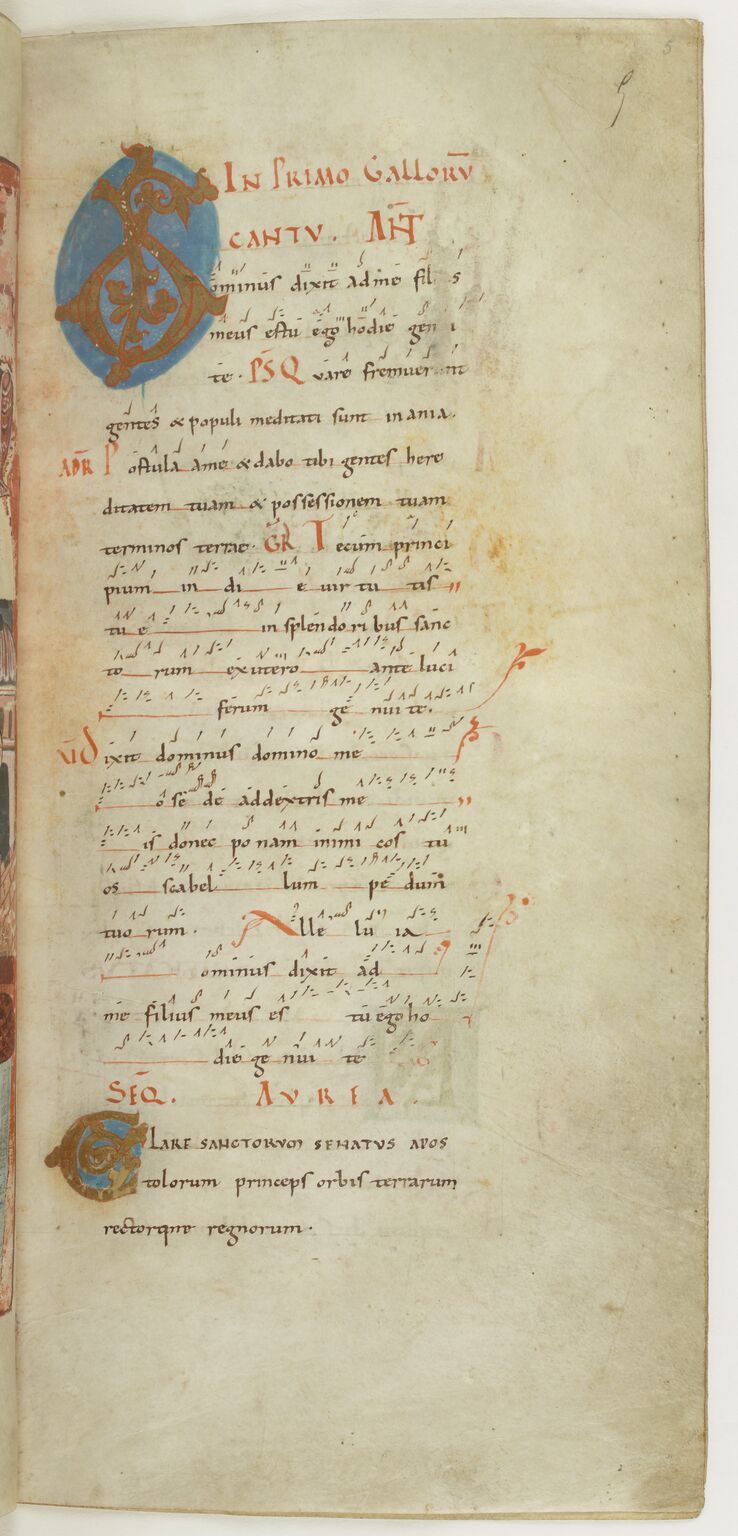 5
5
IN PRIMO GALLORŪ
CANTU. AÑT
Dominus dixit ad me fili s
meus es tu ego hodie gen i
te. PS̄ Quare fremuer nt
gentes & populi meditati sunt inania.
AD R̄ Postula a me & dabo tibi gentes here
ditatem tuam & possessionem tuam
terminos terrae. GR̄ Tecum princi
pium in di e virtu tis
tu e in splendoribus sanc
to rum ex utero ante luci
ferum ge nui te.
V̄ Dixit dominus domino me
o sede ad dextris me
is donec ponam inimi cos tu
os scabel lum pe dum
tuo rum. Alle lu ia
ominus dixit ad
me filius meus es tu ego ho
die ge nui te
SEQ. AUREA.
CLARE SANCTORUM SENATUS APOS
tolorum princeps orbis terrarum
rectorque regnorum.